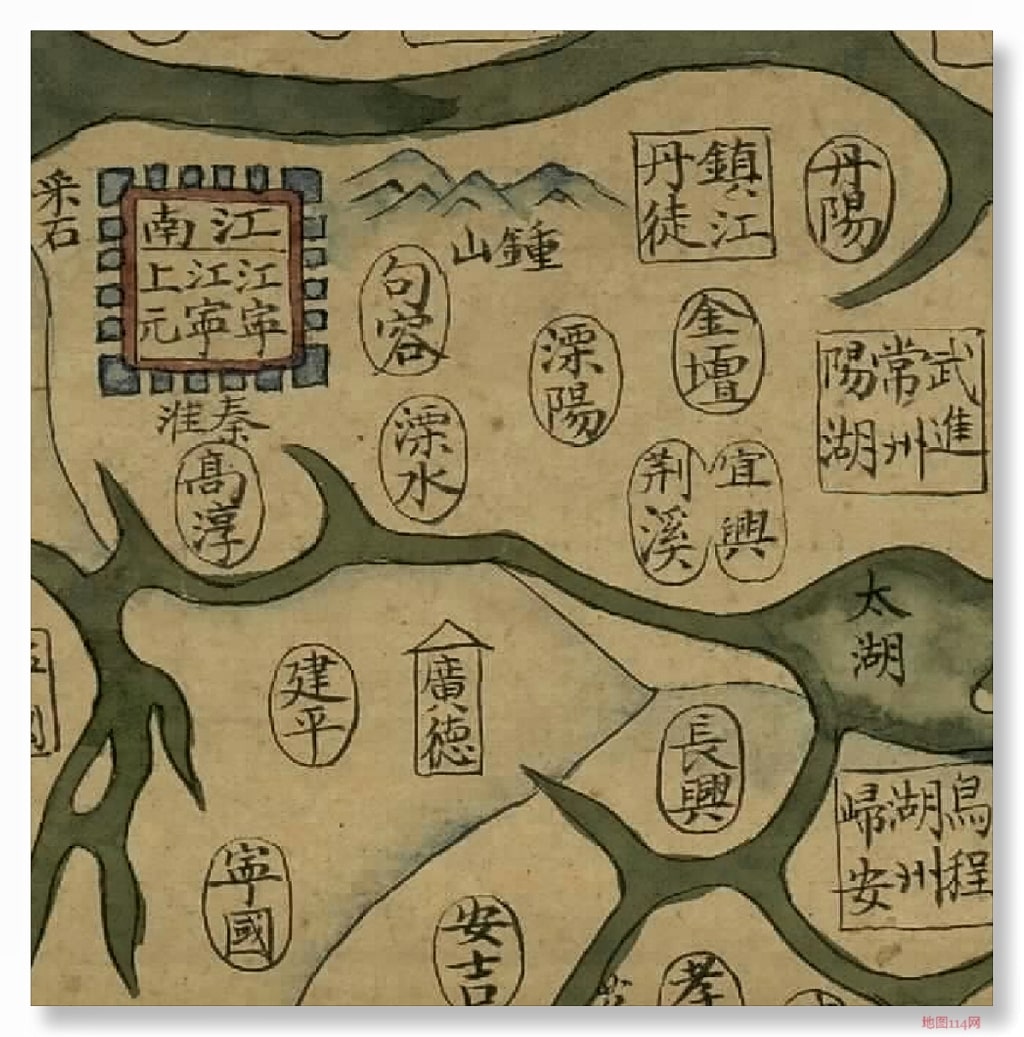 采石
江南
江寧
江寧
上元
鍾山
鎮江
丹徒
丹陽
句容
金壇
溧陽
武進
常州
陽湖
秦淮
溧水
高淳
宜興
荆溪
太湖
建平
廣德
長興
烏程
湖州
歸安
寧國
安吉
孝
地图114网